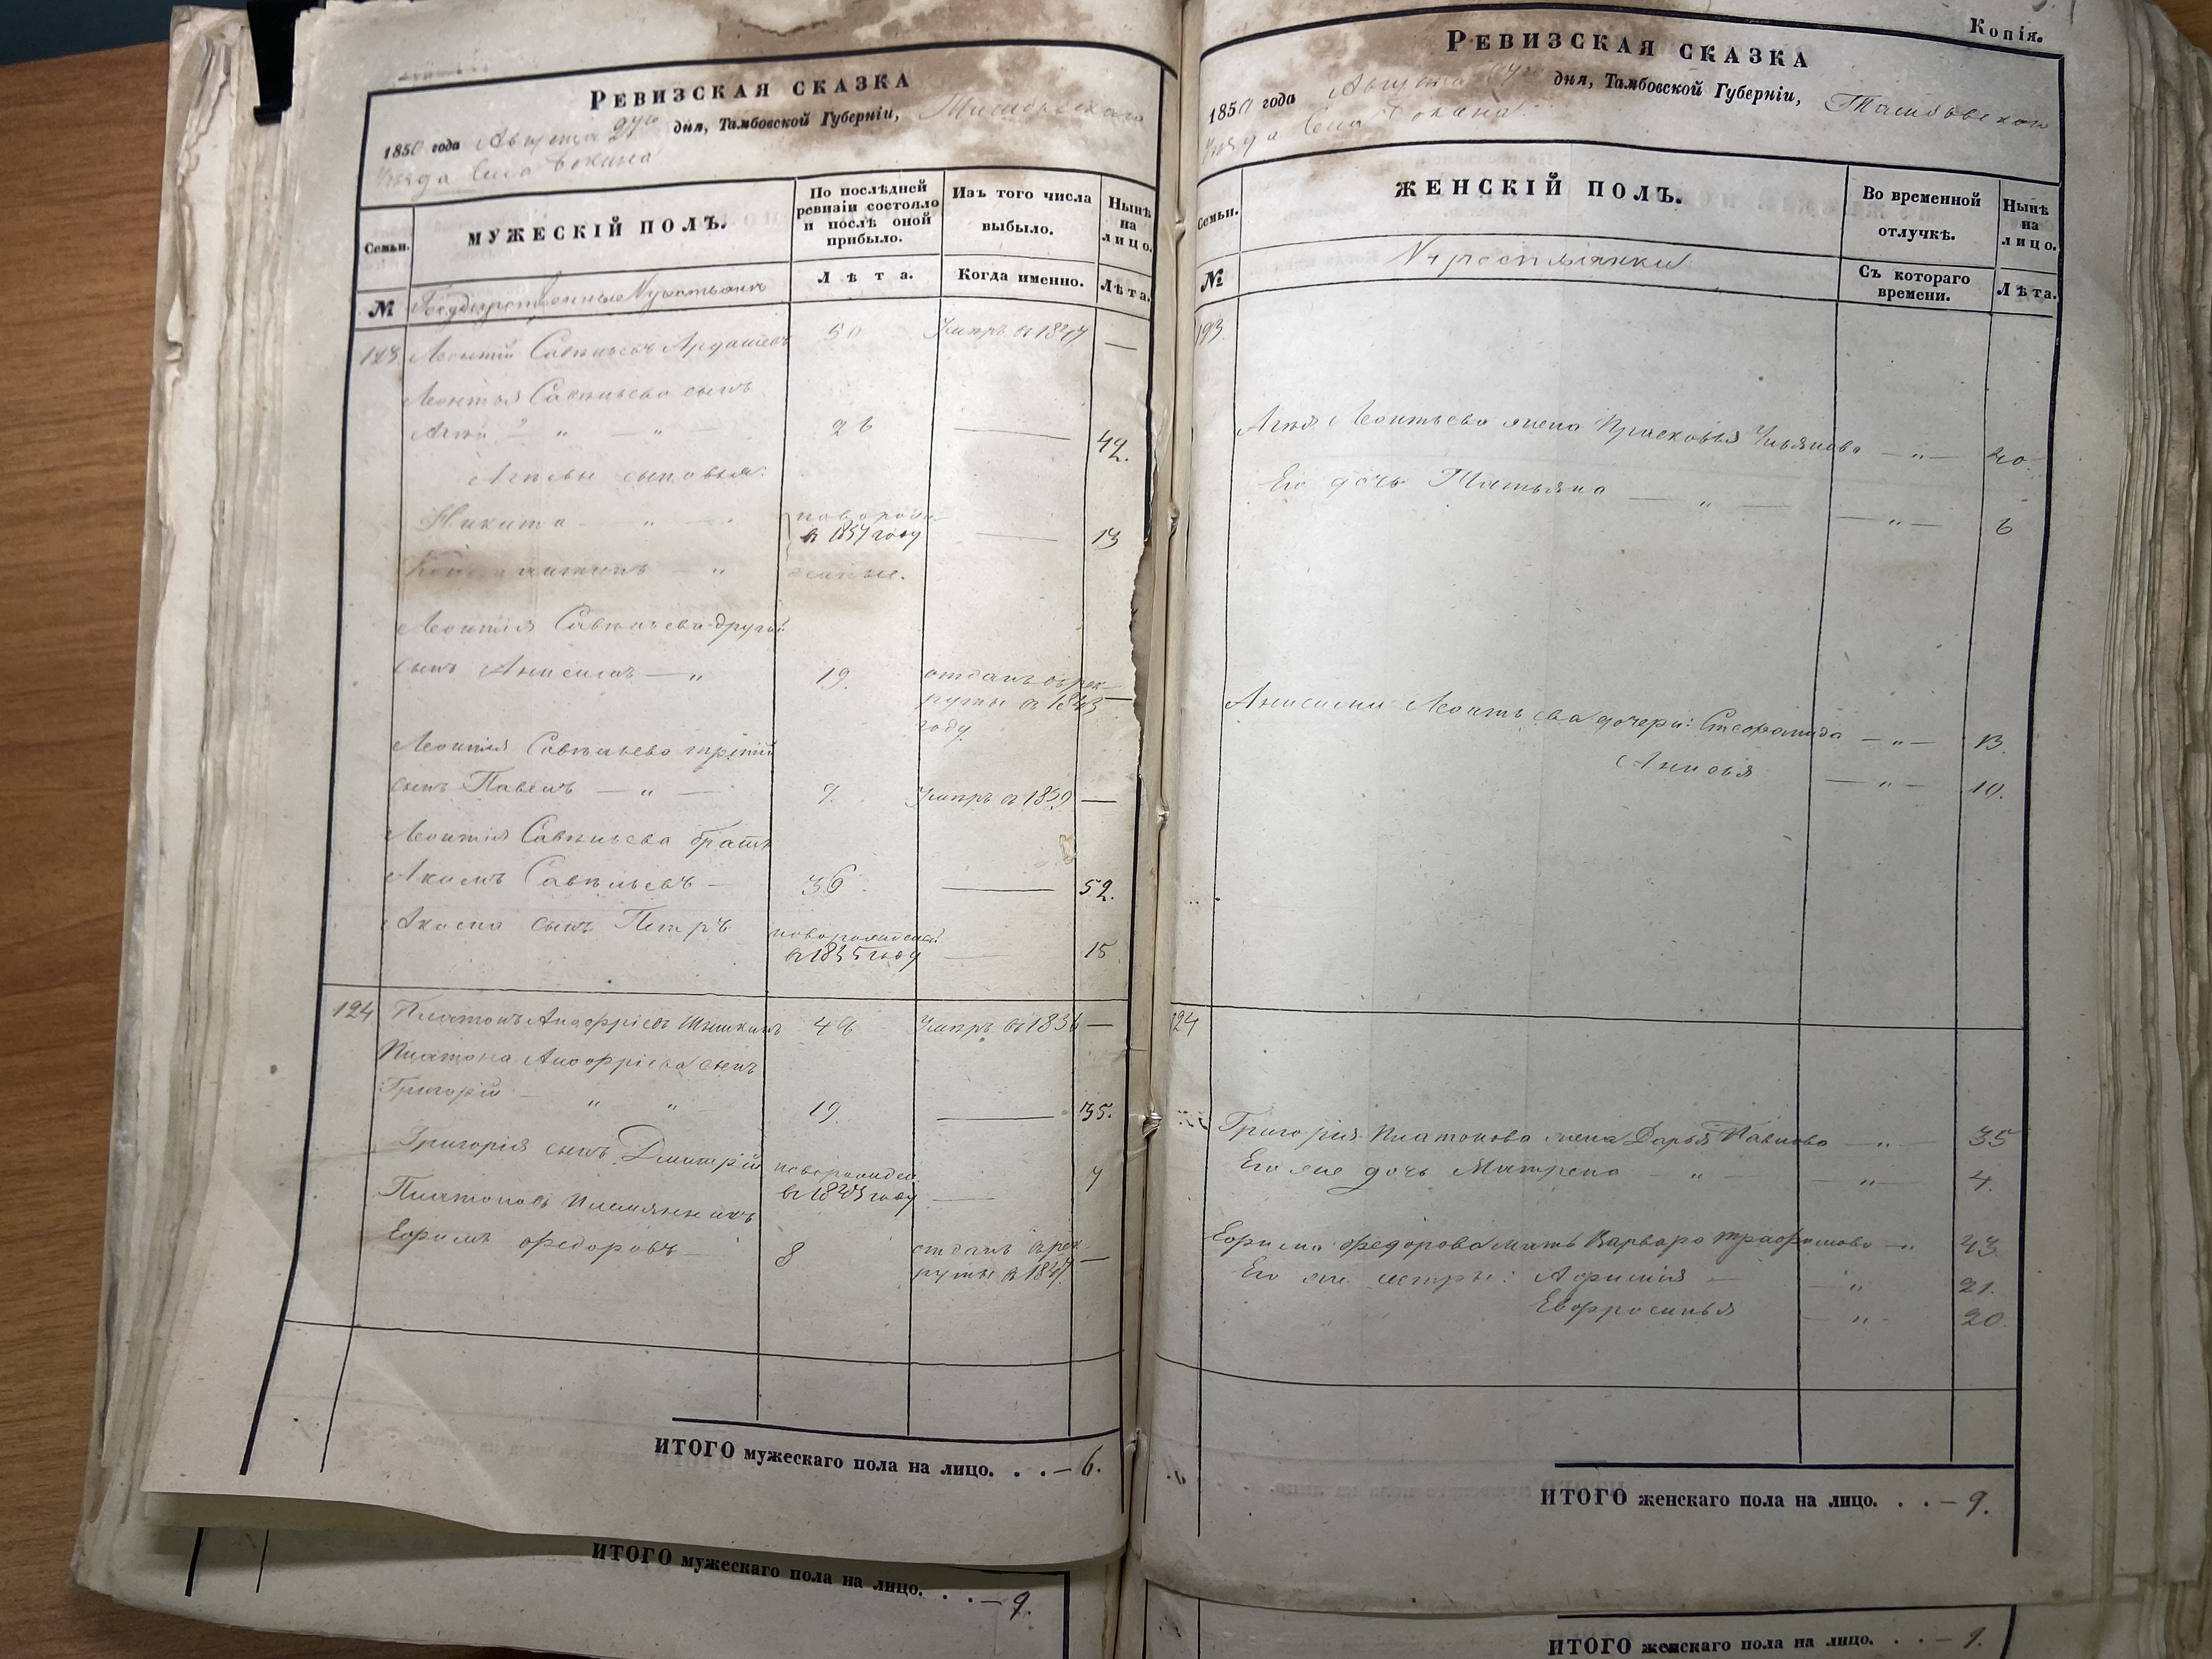 РЕВИЗСКАЯ СКАЗКА
1850 года Августа дня, Тамбовской Губерніи,
уѣзда Села
Семьи.
МУЖЕСКІЙ ПОЛЪ.
По послѣдней ревизіи состояло и послѣ оной прибыло.
Изъ того числа выбыло.
Нынѣ на лицо.
№
Государственные Крестьяне
Лѣта.
Когда именно.
Лѣта.
123 Леонтій Савельевъ Ардашевъ 50 Умръ въ 1847 —
Леонтья Савельева сынъ
26 — 42.
Агѣевы сыновья:
Никита — „ — новорожд. в 1837 году — 13
Константинъ — „
Леонтія Савельева другой
сынъ Анисимъ — „ 19. отданъ въ рек-
руты в 1843 —
году
Леонтія Савельева третій
сынъ Павелъ — „ — 7. Умръ в 1839 —
Леонтія Савельева братъ
Акимъ Савельевъ — 36. — 52.
Акима сынъ Петръ новорожденный
в 1835 году — 15
124 Платонъ Анофріевъ Умръ въ 1834 —
Платона Анофріева сынъ
Григорій — „ „ — 19. — 35.
Григорія сынъ Дмитрій новорожден.
въ 1843 году — 7
Платоновъ племянникъ
Ефимъ Федоровъ — 8 отданъ въ рек-
руты в 1847. —
ИТОГО мужескаго пола на лицо. . . — 6.
ИТОГО мужескаго пола на лицо. . . — 9.
Копія.
РЕВИЗСКАЯ СКАЗКА
1850 года Августа дня, Тамбовской Губерніи, Тамбовскаго
уѣзда Села
Семьи.
ЖЕНСКІЙ ПОЛЪ.
Во временной отлучкѣ.
Нынѣ на лицо.
№
Крестьянки
Съ котораго времени.
Лѣта.
123.
Агѣя Леонтьева жена Прасковья Ульянова — „ — 40.
Его дочь Татьяна — „ — — „ — 6
Анисима Леонтьева дочери: Стеорапида — „ — 13.
Анисья — „ — 10.
124
Григорія Платонова жена Дарья Павлова — „ — 35
Его же дочь Матрена — „ — — „ — 4.
Ефима Федорова мать Варвара — „ 43.
Его же сестры: Афимія — „ 21.
Евфросинья — „ — 20.
ИТОГО женскаго пола на лицо. . . — 9.
ИТОГО женскаго пола на лицо. . . — 9.